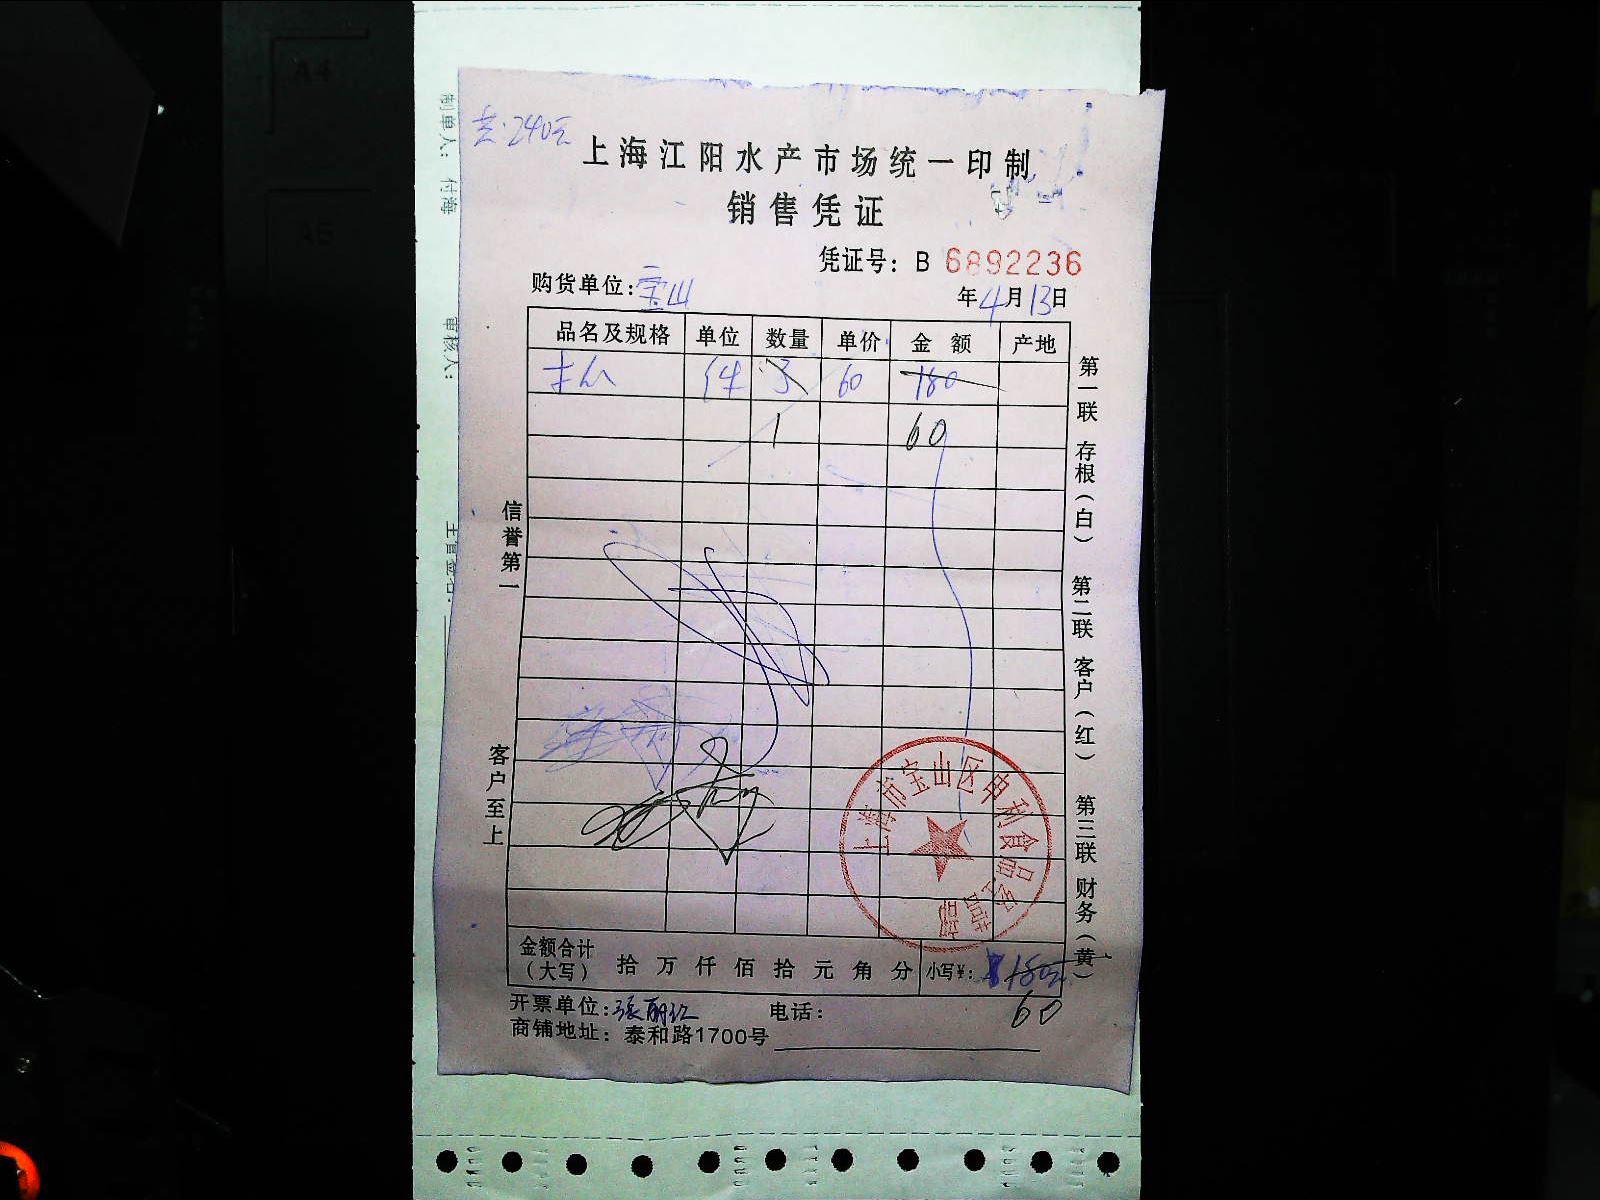 共:240元
上海江阳水产市场统一印制
销售凭证
凭证号: B 6892236
购货单位: 宝山
年4月13日
品名及规格 单位 数量 单价 金额 产地
件 3 60 180
1 60
信誉第一
客户至上
第一联 存根(白) 第二联 客户(红) 第三联 财务(黄)
上海市宝山区申利食品经营部
金额合计(大写) 拾 万 仟 佰 拾 元 角 分 小写¥: 180元
60
开票单位: 张丽红 电话:
商铺地址: 泰和路1700号
制单人: 付海
审核人:
主管签名:
A4
A5